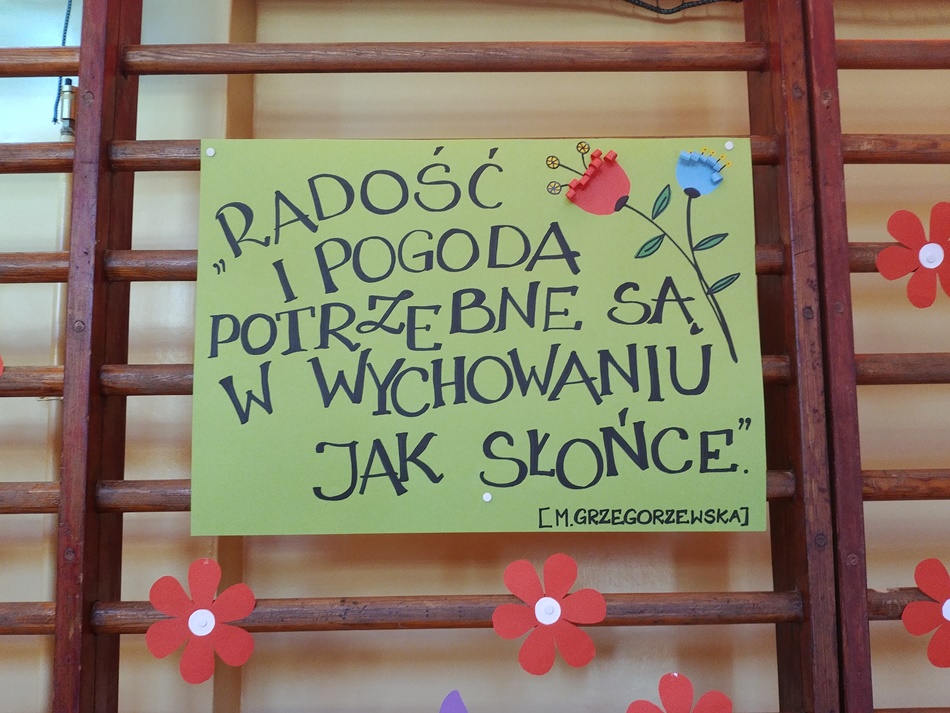 „RADOŚĆ
I POGODA
POTRZEBNE SĄ
W WYCHOWANIU
JAK SŁOŃCE”.
[M.GRZEGORZEWSKA]